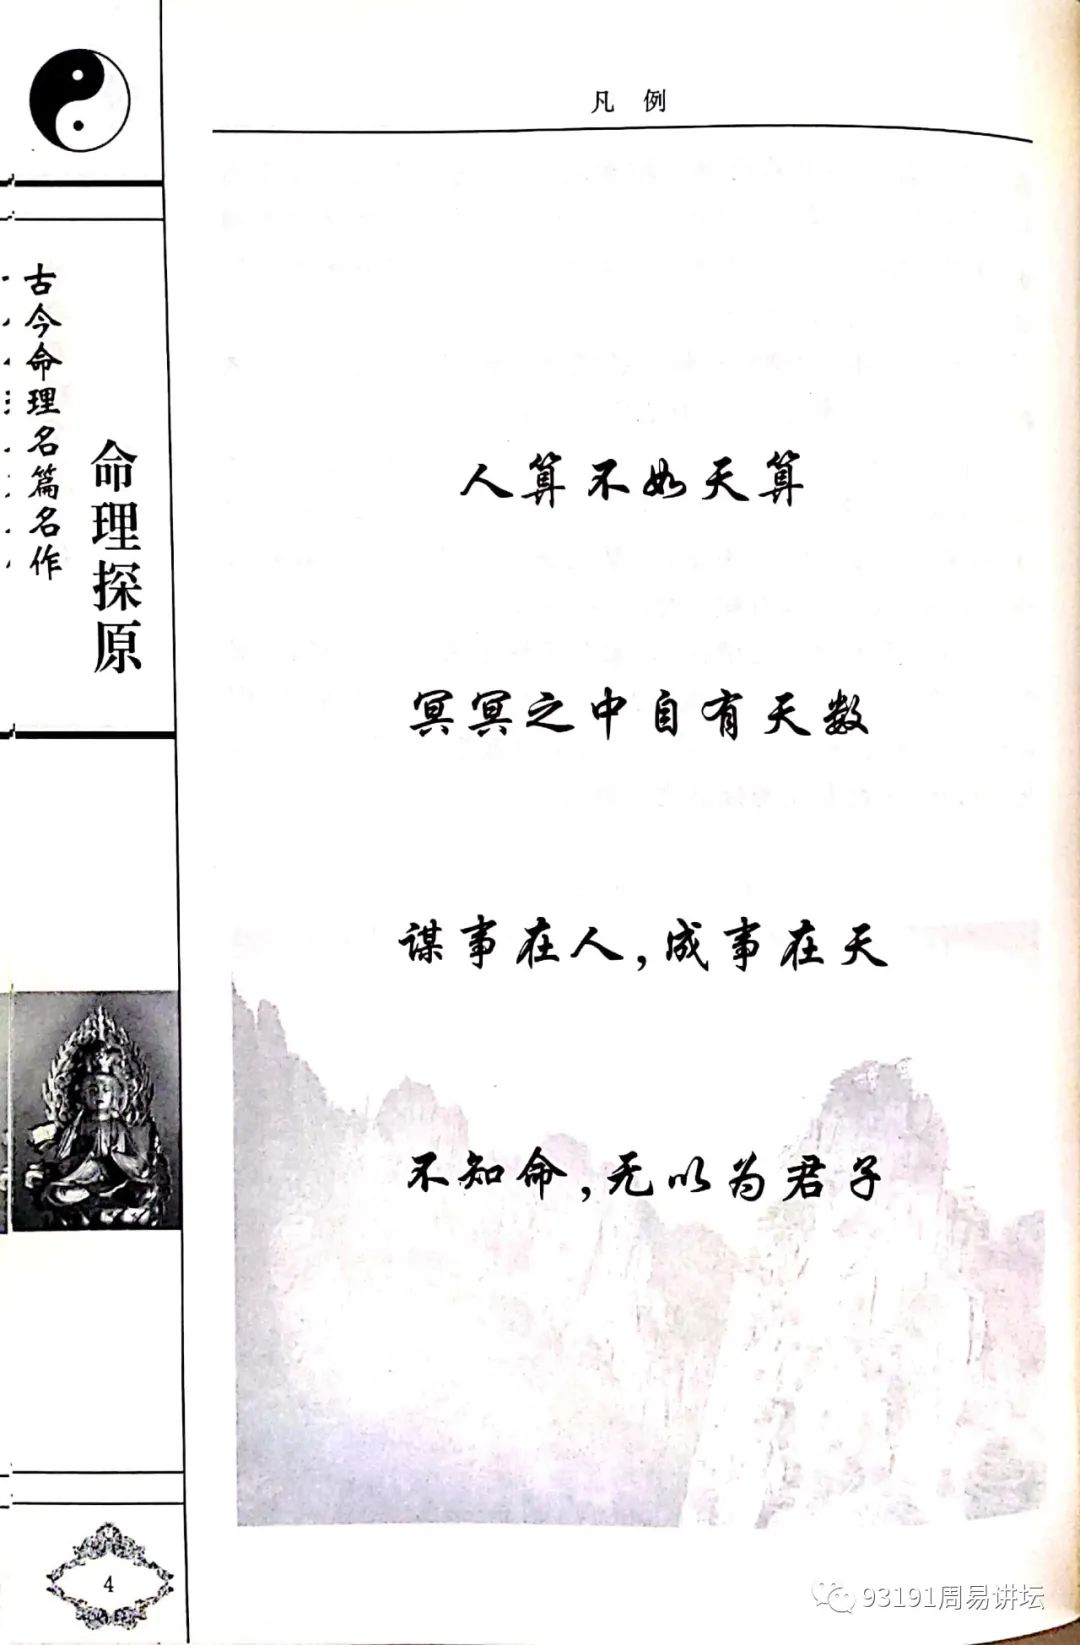 凡 例
古今命理名篇名作
命理探原
人算不如天算
冥冥之中自有天数
谋事在人,成事在天
不知命,无以为君子
4
93191周易讲坛